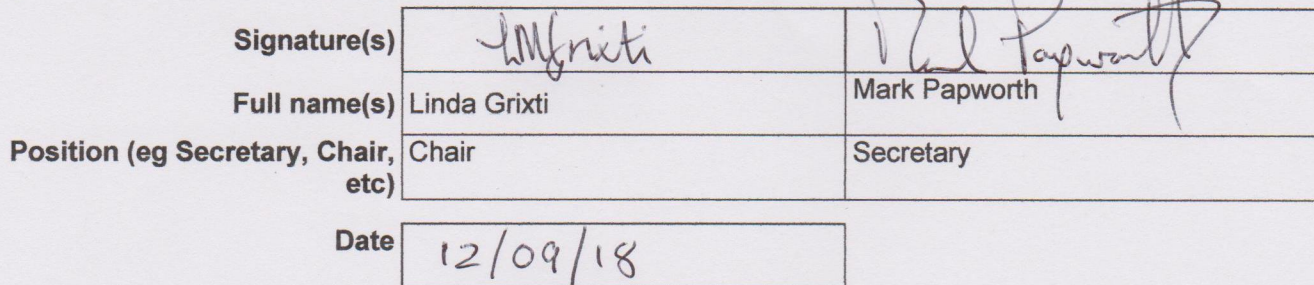 Signature(s) LMGrixti Mark Papworth
Full name(s) Linda Grixti Mark Papworth
Position (eg Secretary, Chair, etc) Chair Secretary
Date 12/09/18